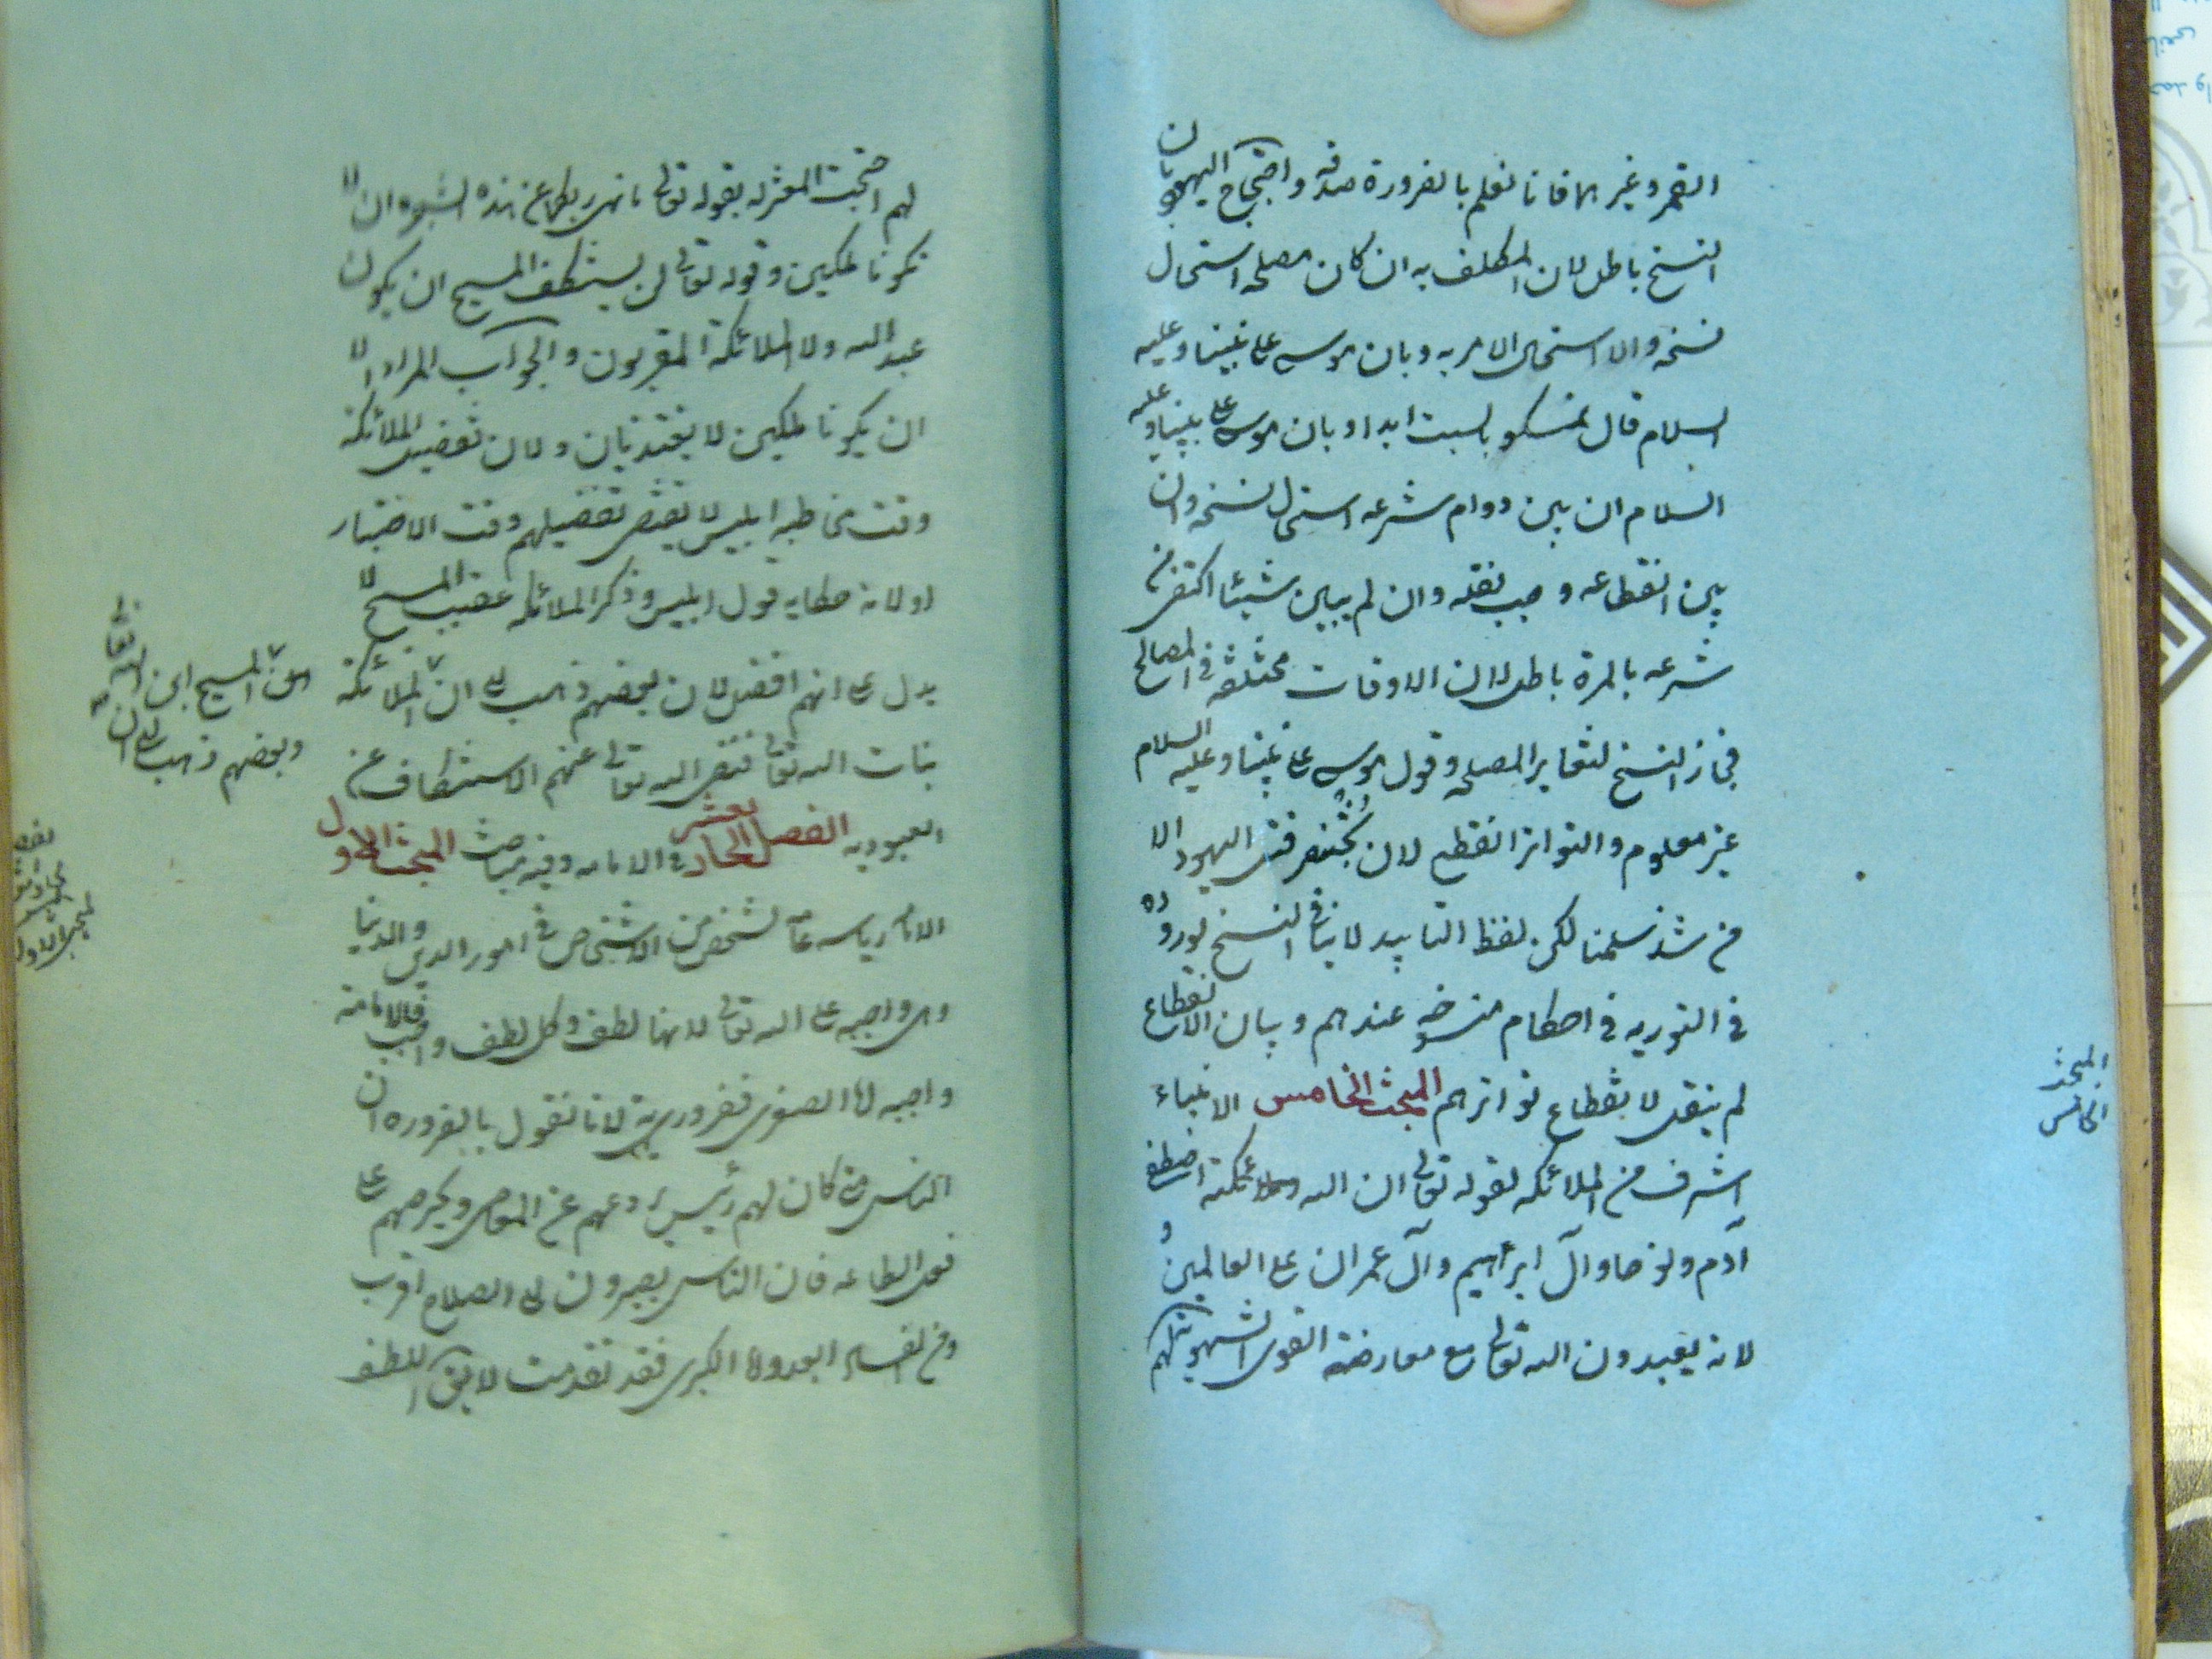 القمر وغيرها فانا نعلم بالضرورة صدقه واحتجاج اليهود بان
النسخ باطل لان المكلف به ان كان مصلحه استحال
نسخه والا استحال الامر به وبان موسى على نبينا وعليه
السلام قال تمسكو بالسبت ابدا وبان موسى على نبينا وعليه
السلام ان بين دوام شرعه استحال نسخه وان
بين انقطاعه وجب نقله وان لم يبين شيئا اكتفى من
شرعه بالمرة باطل لان الاوقات مختلفه فى المصالح
فجاز النسخ لتغاير المصلحه وقول موسى على نبينا وعليه السلام
غير معلوم والتواتر انقطع لان بُخْتُنصر قتل اليهود الا
من شذ سلمنا لكن لفظ التابيد لا ينافى النسخ لوروده
فى التوريه فى احكام منسوخه عندهم وبيان الانقطاع
لم ينقل لانقطاع تواترهم المبحث الخامس الانبياء
اشرف من الملائكه لقوله تعالى ان الله وملائكته اصطفى
آدم ونوحا وآل ابراهيم وآل عمران على العالمين و
لانه يعبدون الله تعالى مع معارضة القوى الشهويه
المبحث
الخامس
لهم احتجت المعتزله بقوله تعالى ما نهيكما ربكما عن هذه الشجره ان لا
تكونا ملكين وقوله تعالى لن يستنكف المسيح ان يكون
عبد الله ولا الملائكة المقربون والجواب المراد الا
ان يكونا ملكين لا يغتذيان ولان تفضيل الملائكة
وقت مخاطبه ابليس لا يقتضى تفضيلهم وقت الاختبار
او لانه حكايه قول ابليس وذكر الملائكه عقيب المسيح لا
يدل على انهم افضل لان بعضهم ذهب الى ان الملائكة
بنات الله تعالى فنفى الله تعالى عنهم الاستنكاف عن
العبوديه الفصل الحاديعشر فى الامامه وفيه مباحث المبحث الاول
الامامه رياسه عامه لشخص من الاشخاص فى امور الدين والدنيا
وهى واجبه على الله تعالى لانها لطف وكل لطف واجب فالامامة
واجبه اما الصغرى فضروريه لانا نقول بالضروره ان
الناس متى كان لهم رئيس يردعهم عن المعاصى ويحرصهم على
فعل الطاعه فان الناس يصيرون الى الصلاح اقرب
ومن الفساد ابعد واما الكبرى فقد تقدمت لا يق اللطف
المسيح ابن الله تعالى
وبعضهم ذهب الى ان
المبحث الاول